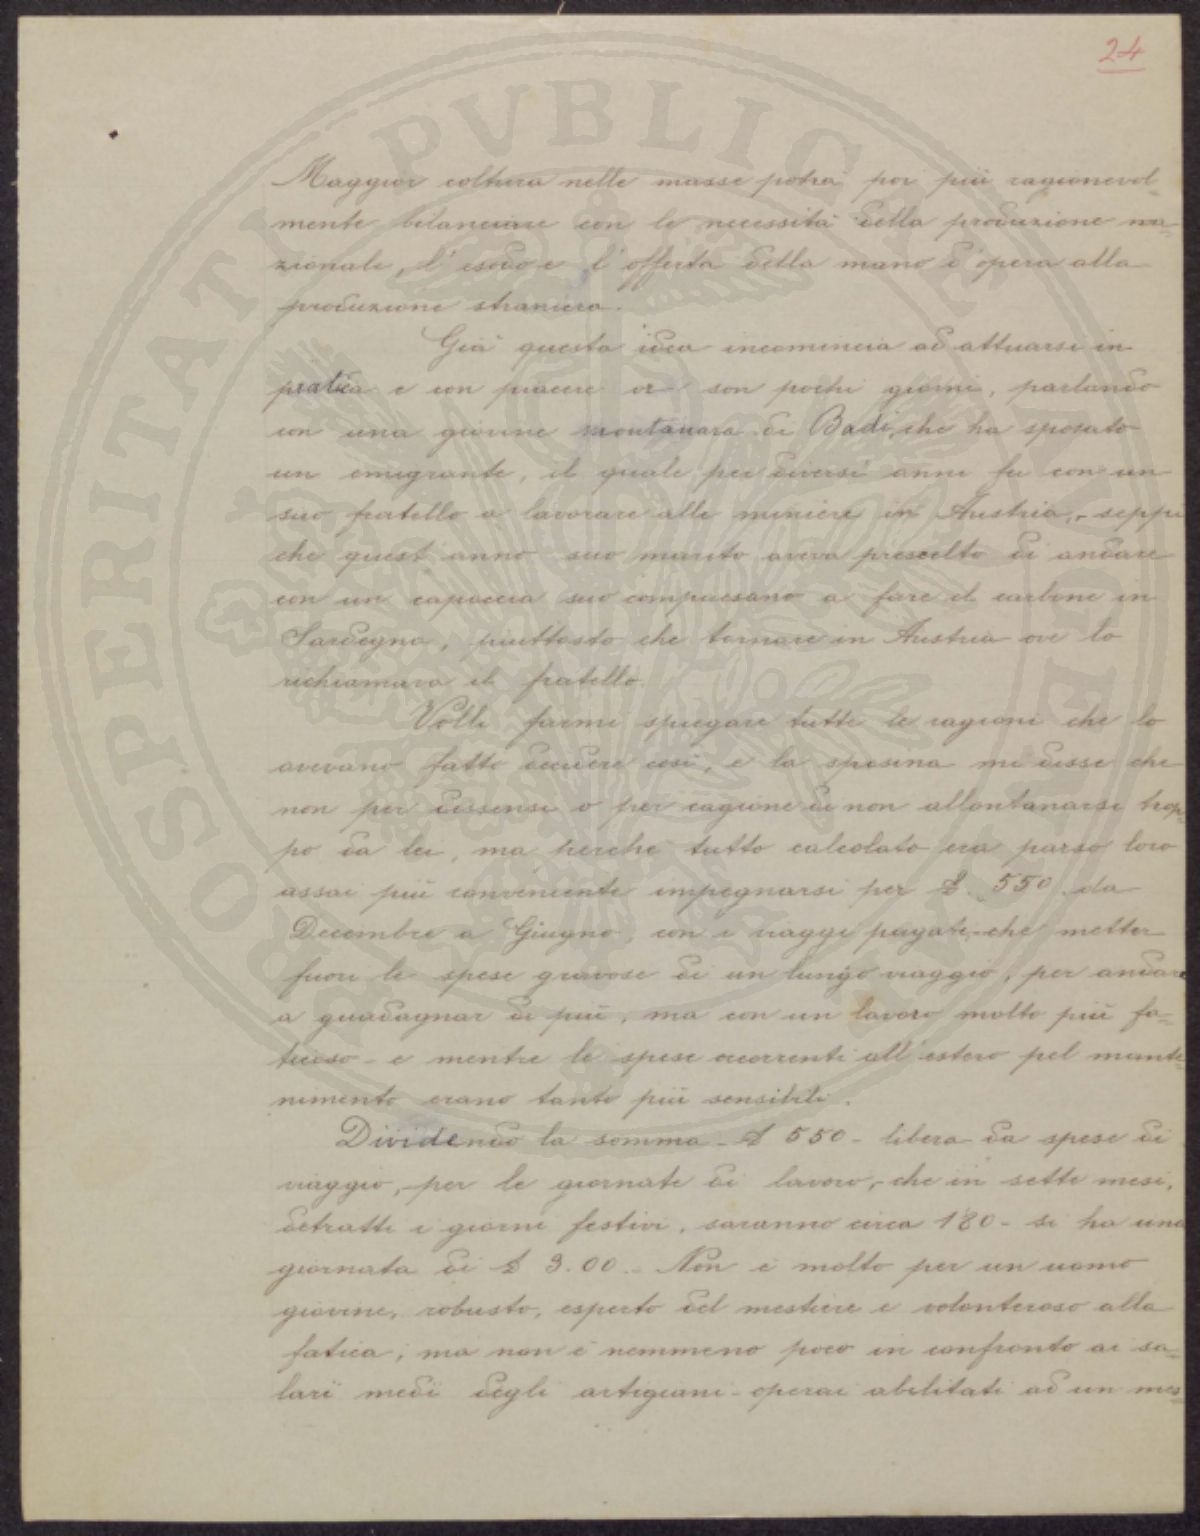 24
PVBLICE
PROSPERITATI
Maggior coltura nelle masse potrà poi più ragionevol-
mente bilanciare con le necessità della produzione na-
zionale, l'esodo e l'offerta della mano d'opera alla
produzione straniera.
Già questa idea incomincia ad attuarsi in
pratica e con piacere or son pochi giorni, parlando
con una giovine montanara di Badi, che ha sposato
un emigrante, il quale per diversi anni fu con un
suo fratello a lavorare alle miniere in Austria, - seppi
che quest'anno suo marito aveva prescelto di andare
con un capoccia suo compaesano a fare il carbone in
Sardegna, piuttosto che tornare in Austria ove lo
richiamava il fratello.
Volli farmi spiegare tutte le ragioni che lo
avevano fatto decidere così, e la sposina mi disse che
non per dissensi o per cagione di non allontanarsi trop-
po da lei, ma perchè tutto calcolato era parso loro
assai più conveniente impegnarsi per £. 550. da
Decembre a Giugno, con i viaggi pagati, - che metter
fuori le spese gravose di un lungo viaggio, per andare
a guadagnar di più, ma con un lavoro molto più fa-
ticoso - e mentre le spese occorrenti all'estero pel mante-
nimento erano tanto più sensibili.
Dividendo la somma - £ 550 - libera da spese di
viaggio, - per le giornate di lavoro, - che in sette mesi,
detratti i giorni festivi, saranno circa 180 - si ha una
giornata di £ 3.00. - Non è molto per un uomo
giovine, robusto, esperto del mestiere e volonteroso alla
fatica; ma non è nemmeno poco in confronto ai sa-
larï medï degli artigiani - operai abilitati ad un mes-